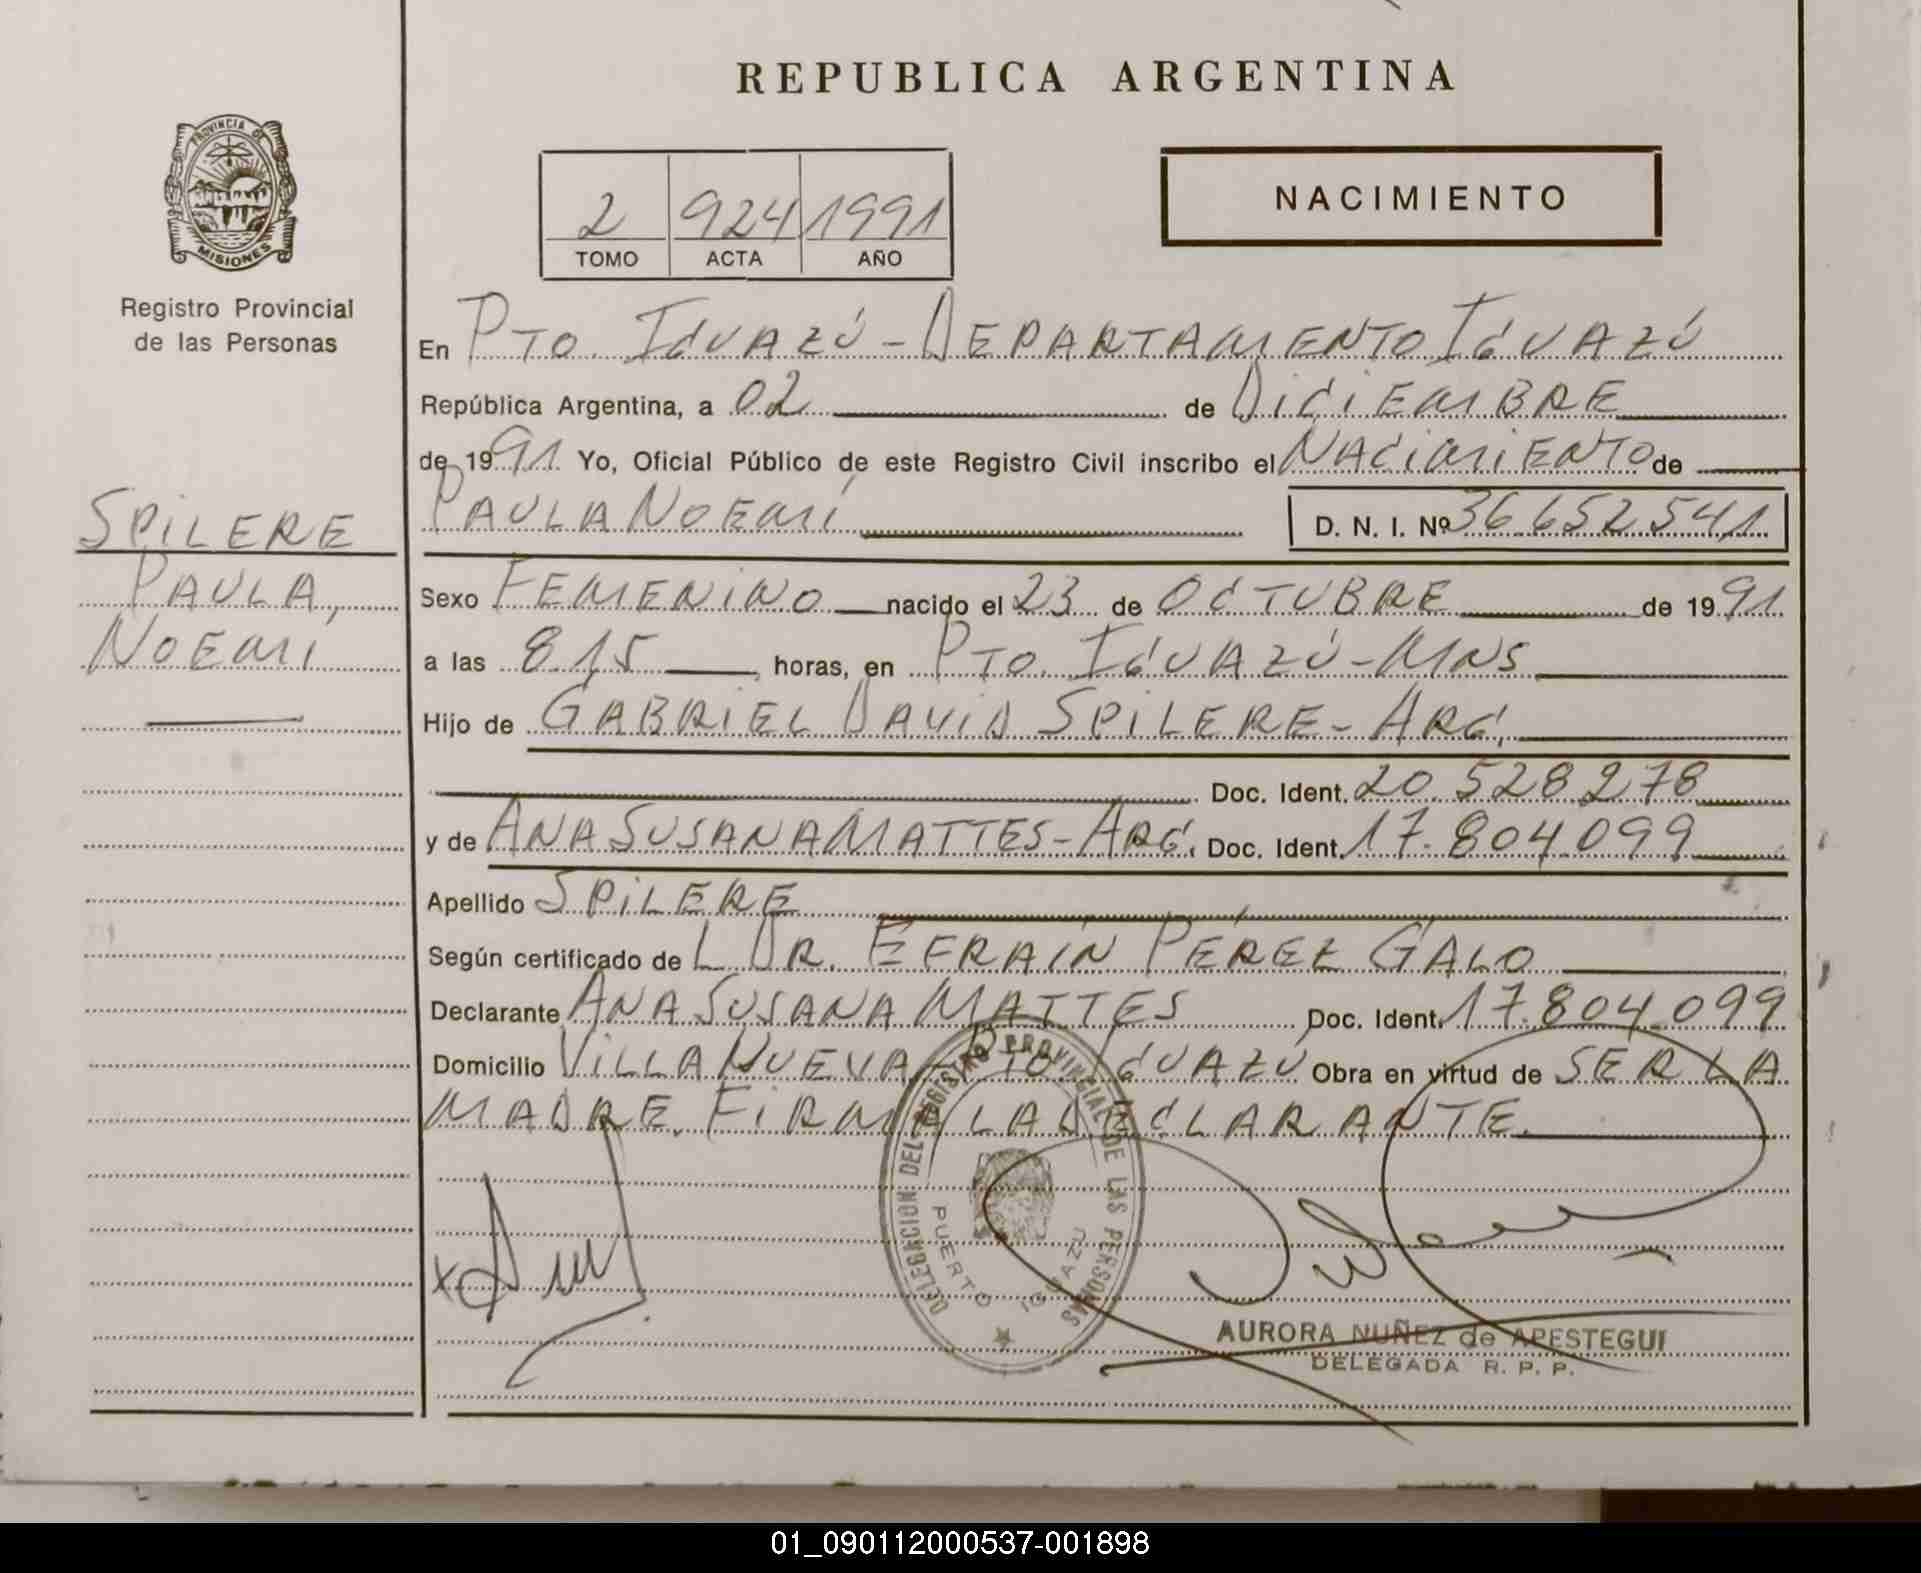 REPUBLICA ARGENTINA
PROVINCIA DE
MISIONES
Registro Provincial
de las Personas
2 924 1991
TOMO ACTA AÑO
NACIMIENTO
En PTO. IGUAZÚ - DEPARTAMENTO IGUAZÚ
República Argentina, a 02 de DICIEMBRE
de 1991 Yo, Oficial Público de este Registro Civil inscribo el NACIMIENTO de
PAULA NOEMÍ D. N. I. Nº 36.652.541
SPILERE
PAULA,
NOEMÍ
Sexo FEMENINO nacido el 23 de OCTUBRE de 1991
a las 8.15 horas, en PTO. IGUAZÚ - MNS
Hijo de GABRIEL DAVID SPILERE - ARG.
Doc. Ident. 20.528.278
y de ANA SUSANA MATTES - ARG. Doc. Ident. 17.804.099
Apellido SPILERE
Según certificado de L DR. EFRAÍN PÉREZ GALO
Declarante ANA SUSANA MATTES Doc. Ident. 17.804.099
Domicilio VILLA NUEVA - PTO. IGUAZÚ Obra en virtud de SER LA
MADRE. FIRMA LA DECLARANTE.
DELEGACION DEL REGISTRO PROVINCIAL DE LAS PERSONAS
PUERTO IGUAZU
AURORA NUÑEZ de APESTEGUI
DELEGADA R. P. P.
01_090112000537-001898